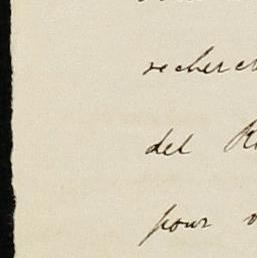 recherc
del R
pour